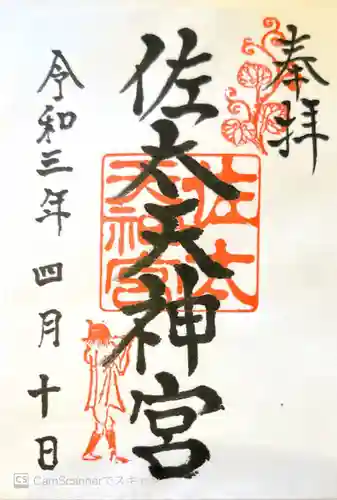 奉拝
佐太天神宮
佐太
天神宮
令和三年四月十日
CS CamScannerでスキャ